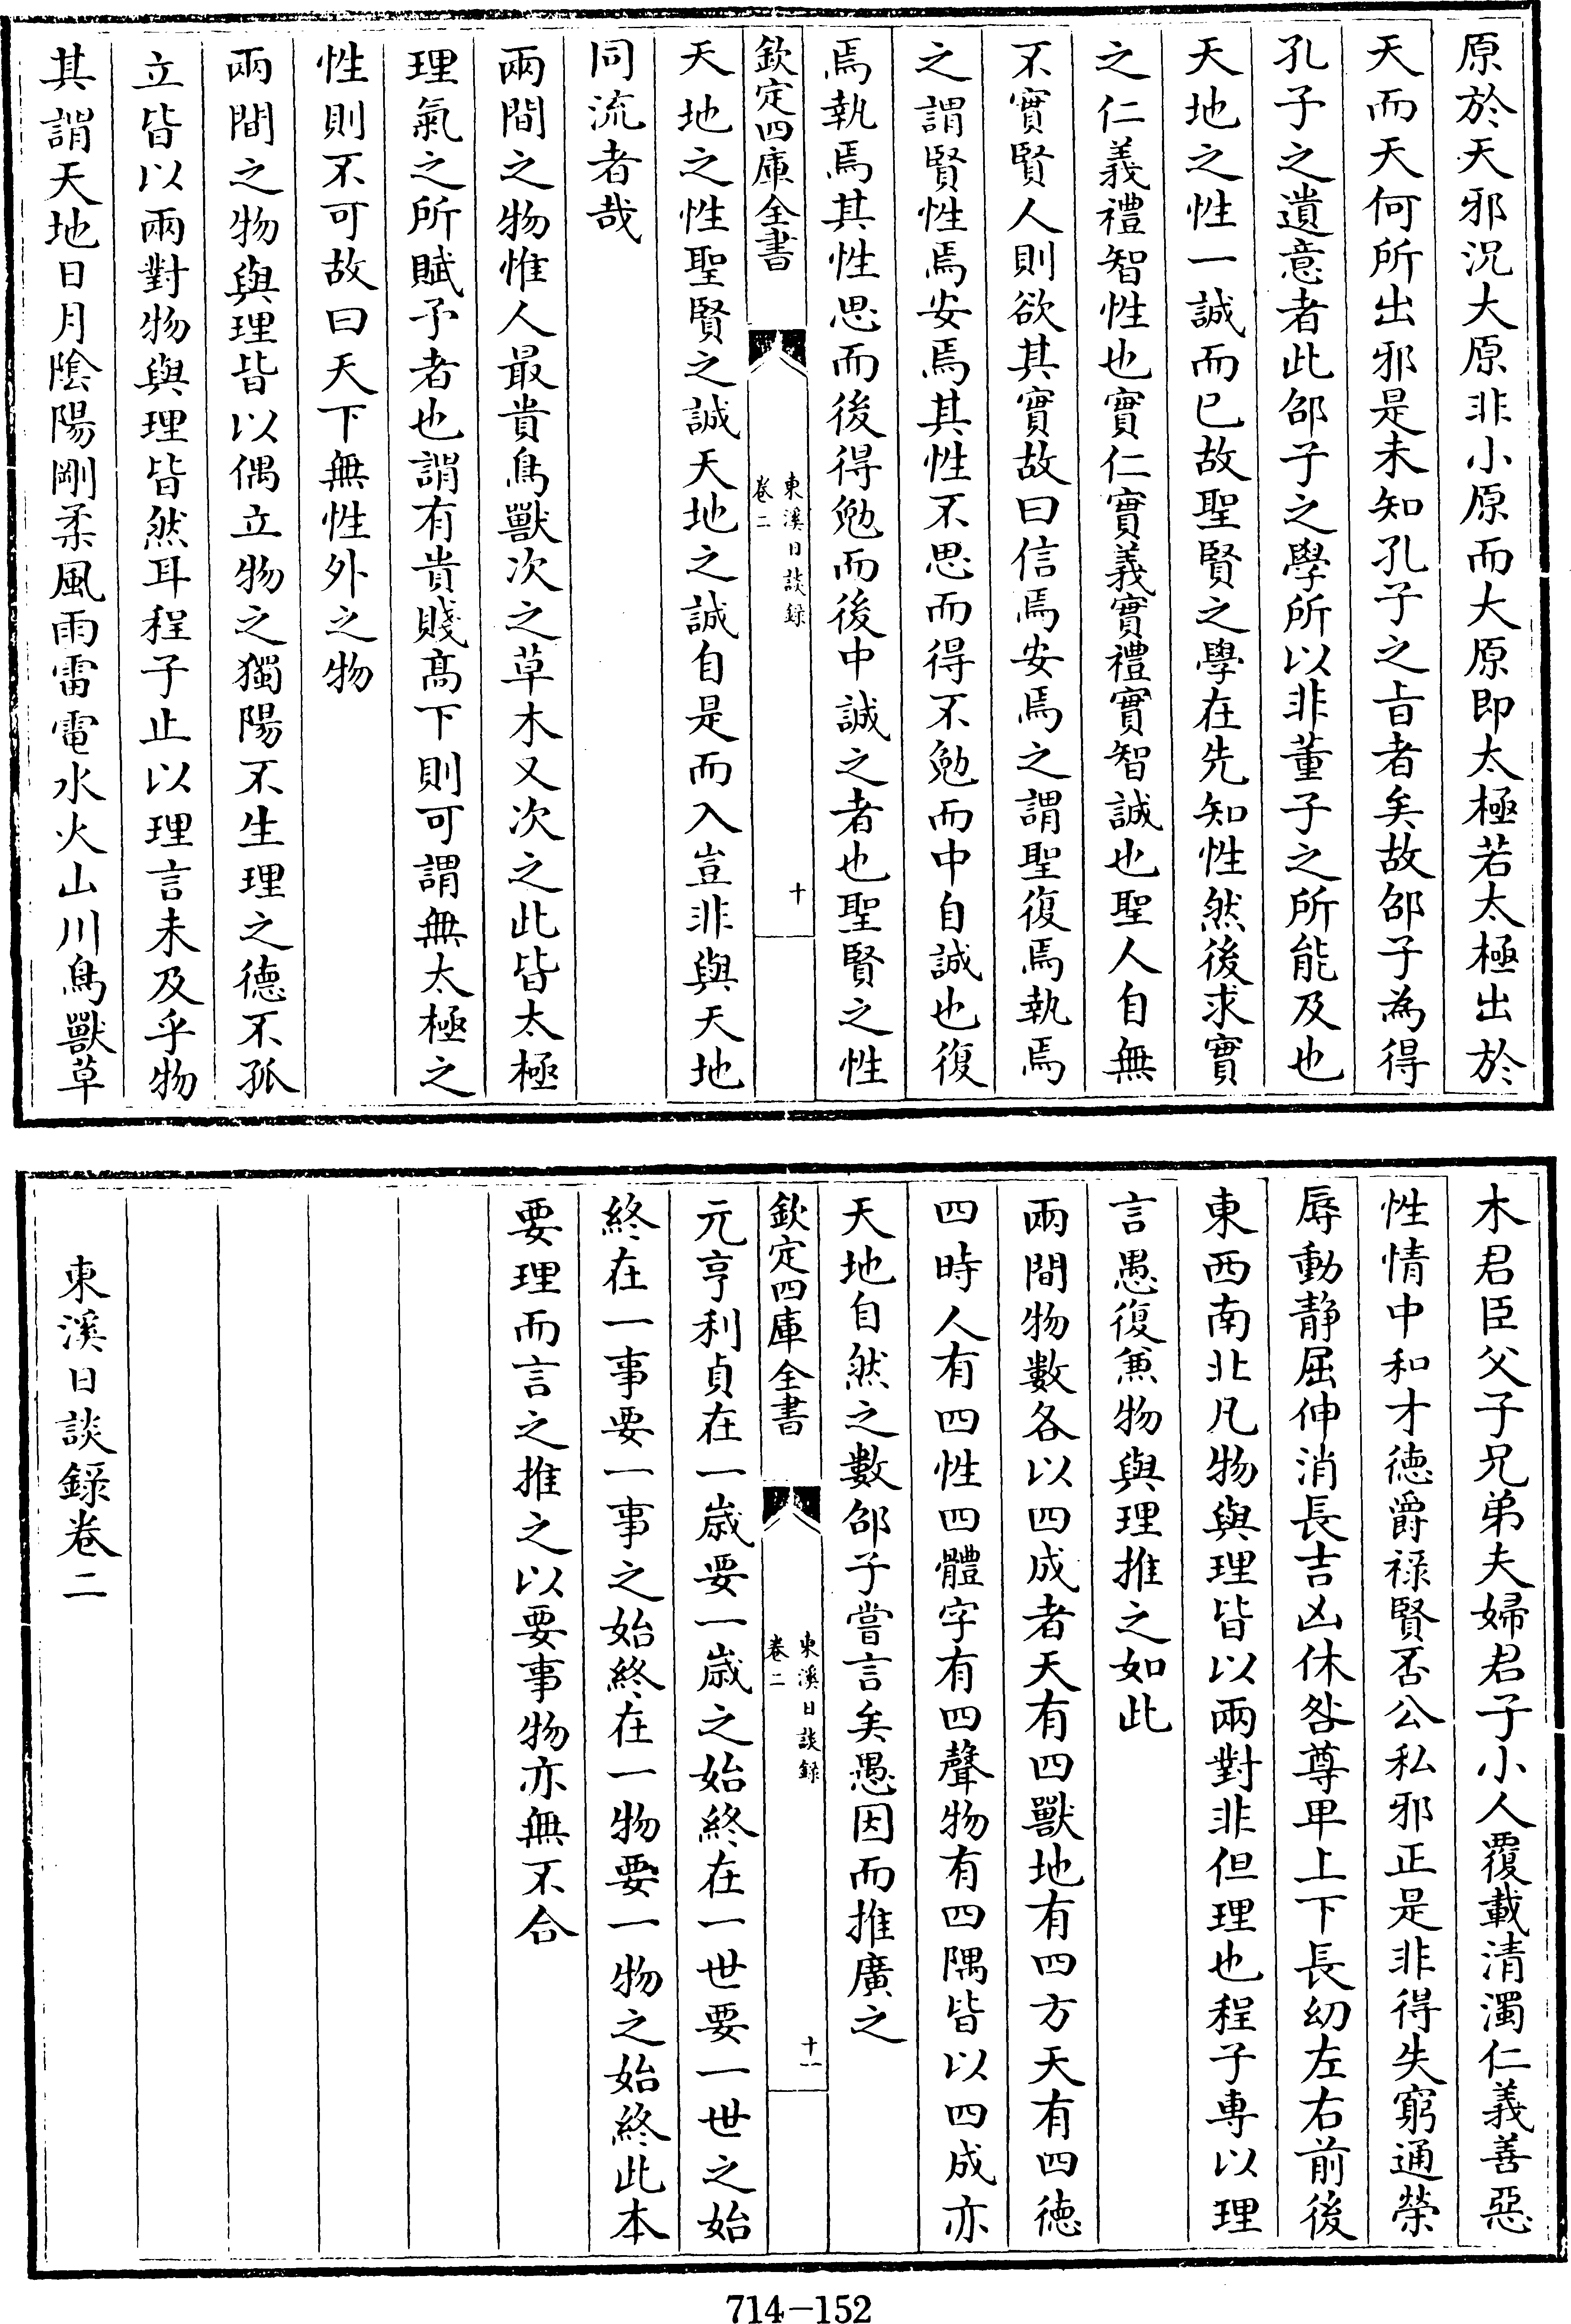 原於天邪況大原非小原而大原即太極若太極出於
天而天何所出邪是未知孔子之㫖者矣故邵子為得
孔子之遺意者此邵子之學所以非董子之所能及也
天地之性一誠而已故聖賢之學在先知性然後求實
之仁義禮智性也實仁實義實禮實智誠也聖人自無
不實賢人則欲其實故曰信焉安焉之謂聖復焉執焉
之謂賢性焉安焉其性不思而得不勉而中自誠也復
焉執焉其性思而後得勉而後中誠之者也聖賢之性
欽定四庫全書
東溪日談録
卷二
十
天地之性聖賢之誠天地之誠自是而入豈非與天地
同流者哉
兩間之物惟人最貴鳥獸次之草木又次之此皆太極
理氣之所賦予者也謂有貴賤髙下則可謂無太極之
性則不可故曰天下無性外之物
兩間之物與理皆以偶立物之獨陽不生理之德不孤
立皆以兩對物與理皆然耳程子止以理言未及乎物
其謂天地日月陰陽剛柔風雨雷電水火山川鳥獸草
木君臣父子兄弟夫婦君子小人覆載清濁仁義善惡
性情中和才徳爵禄賢否公私邪正是非得失窮通榮
辱動靜屈伸消長吉凶休咎尊卑上下長幼左右前後
東西南北凡物與理皆以兩對非但理也程子專以理
言愚復兼物與理推之如此
兩間物數各以四成者天有四獸地有四方天有四徳
四時人有四性四體字有四聲物有四隅皆以四成亦
天地自然之數邵子嘗言矣愚因而推廣之
欽定四庫全書
東溪日談録
卷二
十一
元亨利貞在一嵗要一嵗之始終在一世要一世之始
終在一事要一事之始終在一物要一物之始終此本
要理而言之推之以要事物亦無不合
東溪日談錄卷二
714-152